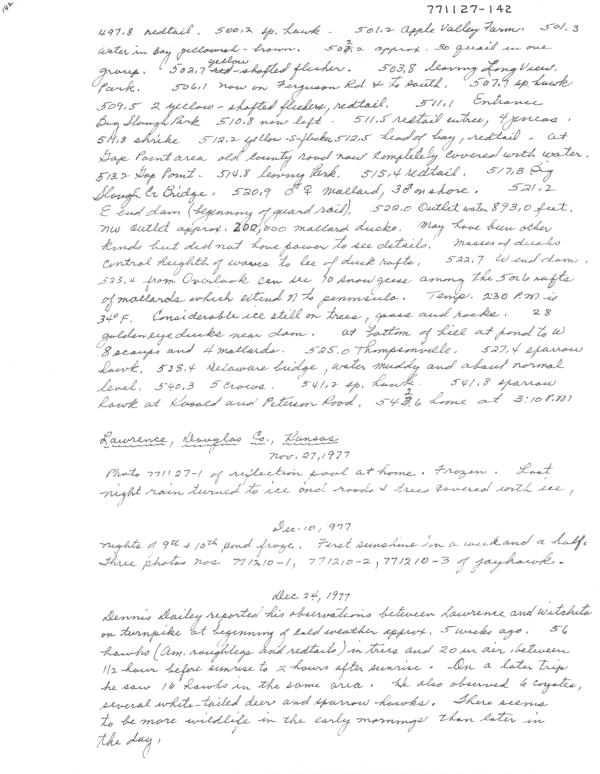 142
771127-142
497.8 redtail. 500.2 sp. hawk - 501.2 Apple Valley Farm. 501.3
water in bay yellowish-brown. 502.2 approx. 30 quail in one
group. 502.7 yellow red-shafted flicker. 503.8 leaving Long View
Park. 506.1 now on Ferguson Rd & to South. 507.9 sp. hawk
509.5 2 yellow-shafted flickers, redtail. 511.1 Entrance
Big Slough Park 510.8 now left. 511.5 redtail entree, 4 juncos.
511.8 shrike 512.2 yellow-s-flicker 512.5 head of bay, redtail. At
Gap Point area old county road now completely covered with water.
513.2 Gap Point - 514.8 leaving Park. 515.4 redtail. 517.3 Big
Slough Cr Bridge. 520.9 ♂ & ♀ mallard, 38 on shore. 521.2
E end dam (beginning of guard rail). 522.0 Outlet water 893.0 feet.
NW outlet approx. 200,000 mallard ducks. May have been other
kinds but did not have power to see details. Masses of ducks
control heighth of waves to lee of duck rafts. 522.7 W end dam.
523.4 from Overlook can see 10 snow geese among the 5 or 6 rafts
of mallards which extend N to peninsula. Temp. 230 P.M is
34°F. Considerable ice still on trees, grass and rocks. 28
goldeneye ducks near dam. At bottom of hill at pond to W
8 scaups and 4 mallards. 525.0 Thompsonville. 527.4 sparrow
hawk. 528.4 Delaware bridge, water muddy and about normal
level. 540.3 5 crows. 541.2 sp. hawk. 541.8 sparrow
hawk at Kasold and Peterson Road. 542.6 home at 3:10 P.M
Lawrence, Douglas Co., Kansas
Nov. 27, 1977
Photo 771127-1 of reflection pool at home. Frozen. Last
night rain turned to ice and roads & trees covered with ice,
Dec. 10, 977
nights of 9th & 10th pond froze. First sunshine in a week and a half.
Three photos nos 771210-1, 771210-2, 771210-3 of jayhawk.
Dec 24, 1977
Dennis Dailey reported his observations between Lawrence and Witchita
on turnpike at beginning of cold weather approx. 5 weeks ago. 56
hawks (Am. roughlegs and redtails) in trees and 20 in air, between
1/2 hour before sunrise to 2 hours after sunrise. On a later trip
he saw 16 hawks in the same area. He also observed 6 coyotes,
several white-tailed deer and sparrow hawks. There seems
to be more wildlife in the early mornings than later in
the day.